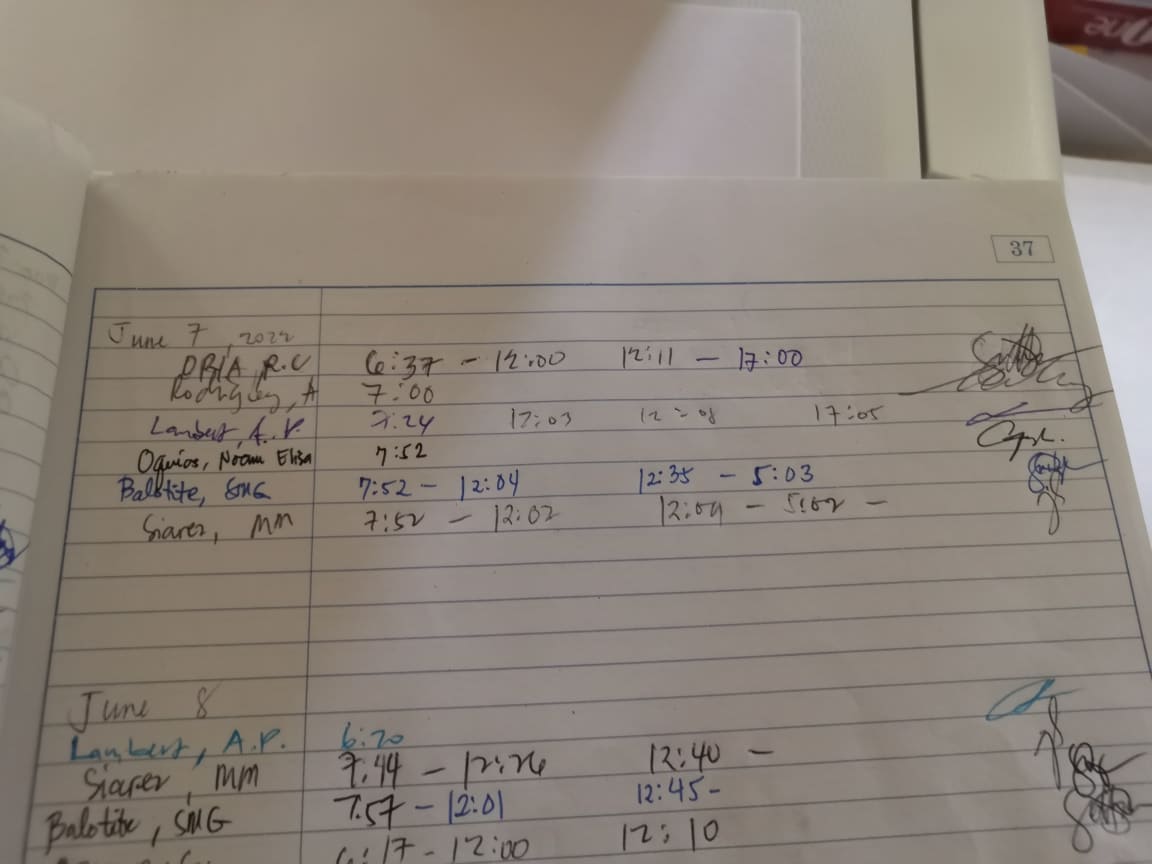 37
June 7, 2022
R.C 6:37 - 12:00 12:11 - 17:00
Rodriguez, A 7:00
Lambert, A.P. 7:24 12:03 12:08 17:05
Oquios, Noemi Elisa 7:52
Balotite, SMG 7:52 - 12:04 12:35 - 5:03
Siarez, MM 7:52 - 12:02 12:09 - 5:02 -
June 8
Lambert, A.P. 6:20
Siarez, MM 7:44 - 12:26 12:40 -
Balotite, SMG 7:57 - 12:01 12:45-
6:17 - 12:00 12:10